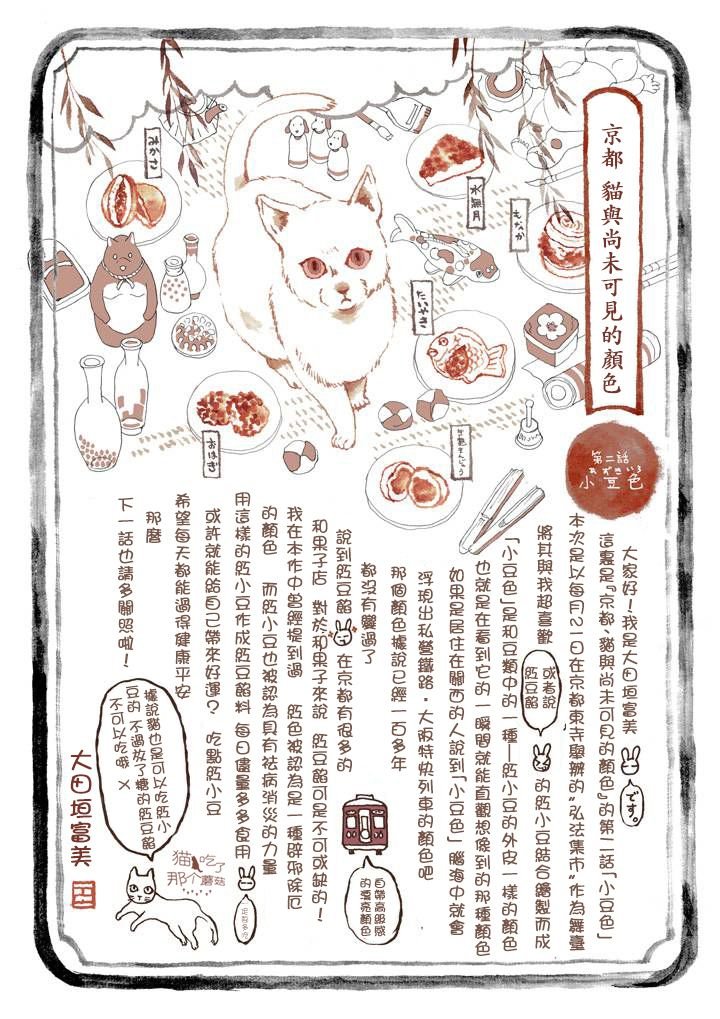 京都 貓與尚未可見的顏色
第二話
あずきいろ
小豆色
みかさ
水無月
もなか
たいやき
おはぎ
大家好！我是大田垣富美
です。
這裏是『京都、貓與尚未可見的顏色』的第二話「小豆色」
本次是以每月21日在京都東寺舉辦的"弘法集市"作為舞臺
將其與我超喜歡
或者說
紅豆餡
的紅小豆結合繪製而成
「小豆色」是和豆類中的一種—紅小豆的外皮一樣的顏色
也就是在看到它的一瞬間就能直觀想像到的那種顏色
如果是居住在關西的人說到「小豆色」腦海中就會
浮現出私營鐵路·大阪特快列車的顏色吧
自帶高級感
的漂亮顏色
那個顏色據說已經一百多年
都沒有變過了
說到紅豆餡
在京都有很多的
和果子店 對於和果子來說 紅豆餡可是不可或缺的！
我在本作中曾經提到過 紅色被認為是一種辟邪除厄
的顏色 而紅小豆也被認為具有祛病消災的力量
用這樣的紅小豆作成紅豆餡料 每日儘量多多食用
或許就能給自己帶來好運？ 吃點紅小豆
希望每天都能過得健康平安
那麼
下一話也請多關照啦！
據說貓也是可以吃紅小
豆的 不過放了糖的紅豆餡
不可以吃哦 X
貓吃了
那个蘑菇
大田垣富美